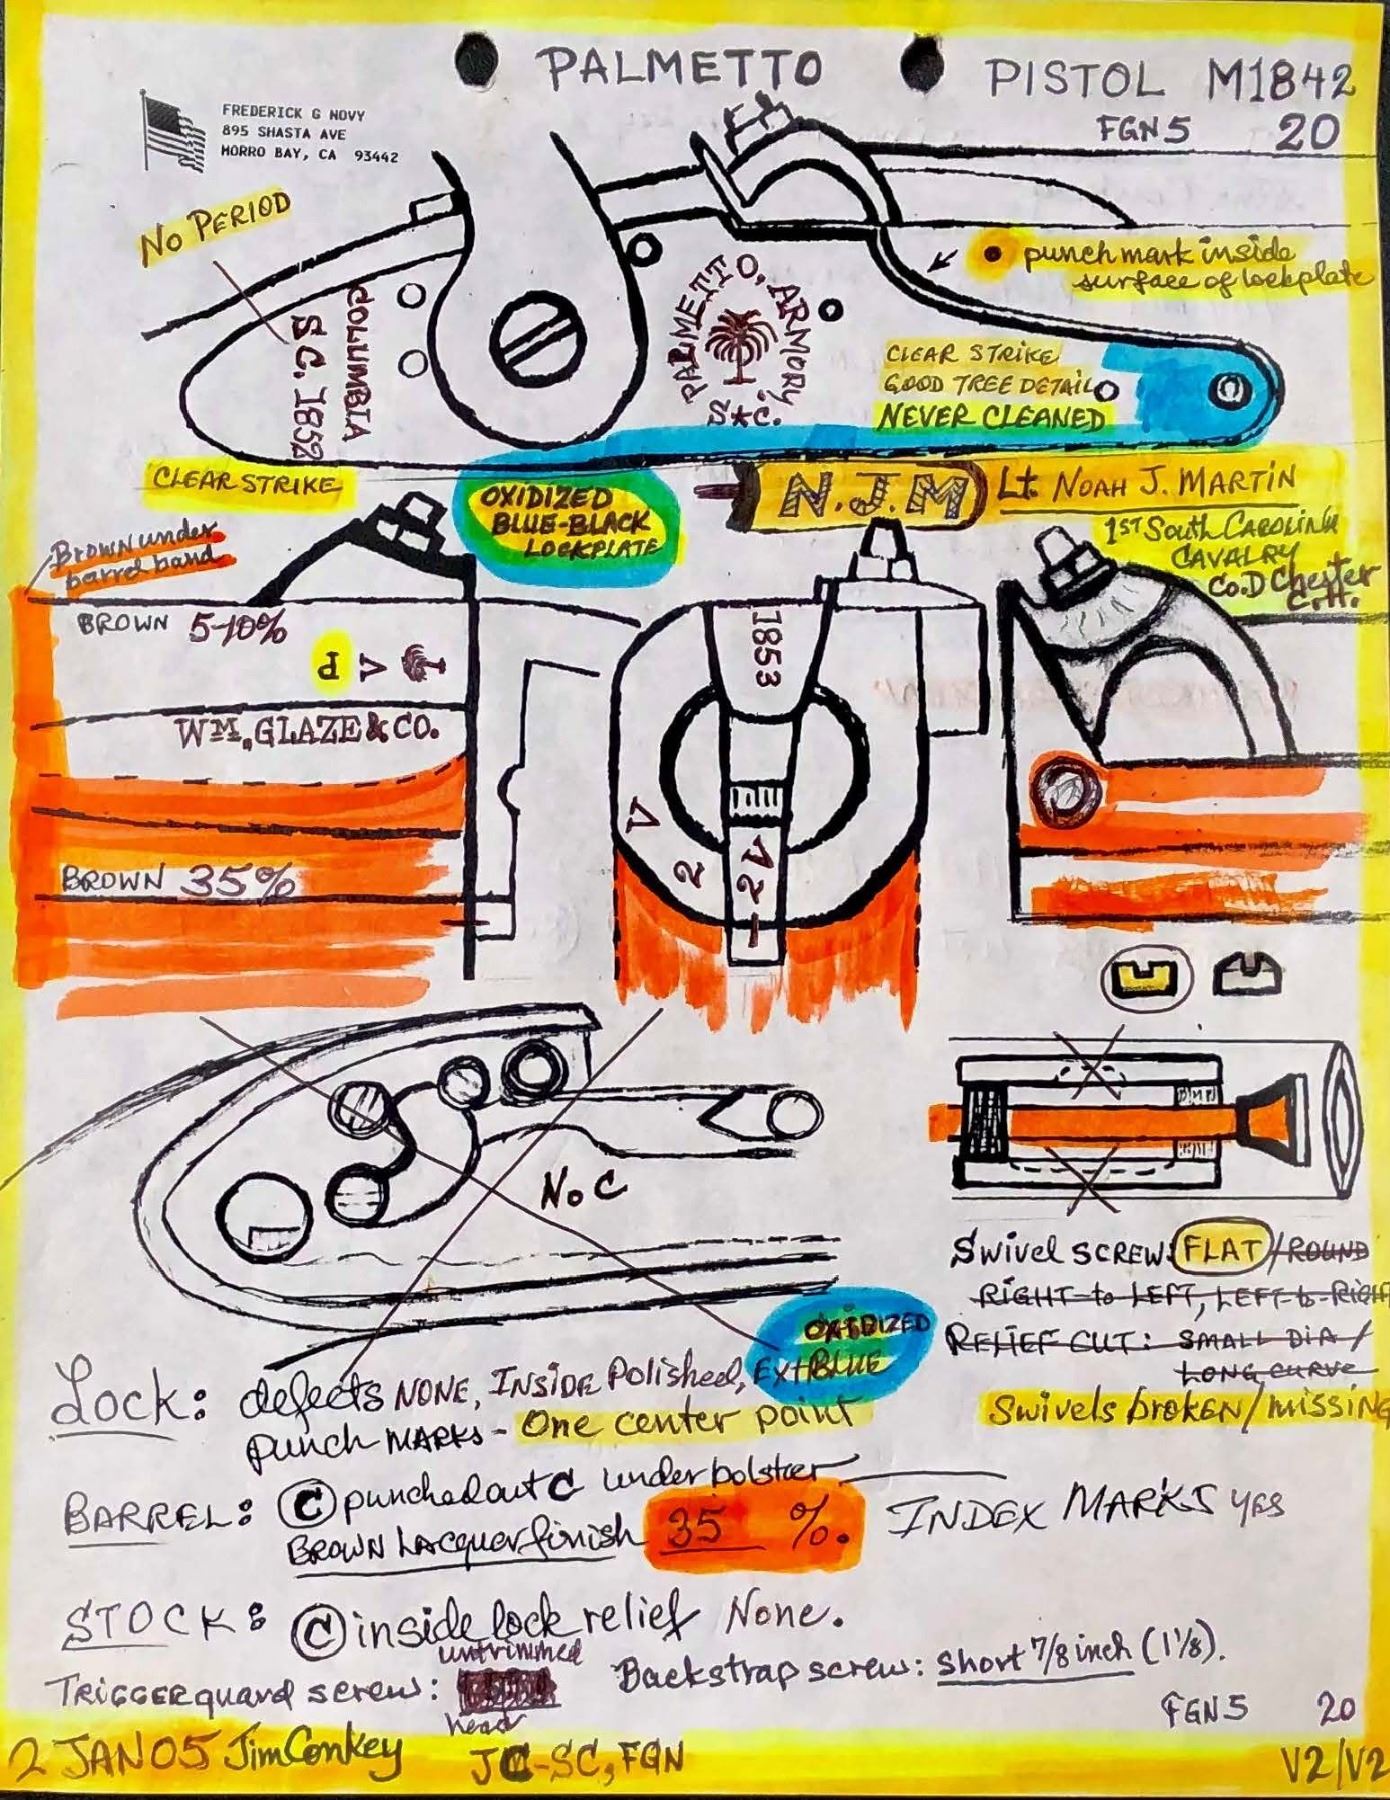 PALMETTO PISTOL M1842
FGN5 20
FREDERICK G NOVY
895 SHASTA AVE
MORRO BAY, CA 93442
NO PERIOD
punch mark inside
surface of lockplate
COLUMBIA
S C. 1852
PALMETTO, ARMORY
S*C.
CLEAR STRIKE
GOOD TREE DETAIL
NEVER CLEANED
CLEAR STRIKE
OXIDIZED
BLUE-BLACK
LOCKPLATE
N.J.M
Lt. NOAH J. MARTIN
1ST SOUTH CAROLINA
CAVALRY
Co.D Chester
C.H.
Brown under
barrel band
BROWN 5-10%
P V
WM. GLAZE & CO.
BROWN 35%
1853
V
2
V2-
No C
Swivel SCREW: FLAT/ROUND
RIGHT to LEFT, LEFT to RIGH
RELIEF CUT: SMALL DIA/
LONG CURVE
Swivels broken/missing
OXIDIZED
Lock: defects NONE, INSIDE Polished, Ext BLUE
punch MARKS - One center point
BARREL: C punched out C under bolster
INDEX MARKS yes
BROWN LAcquer finish 35 %.
STOCK: C inside lock relief None.
untrimmed
TRIGGERguard screw:
head
Backstrap screw: short 7/8 inch (1 1/8).
FGN5 20
2 JAN05 Jim Conkey JC-SC, FGN
V2/V2